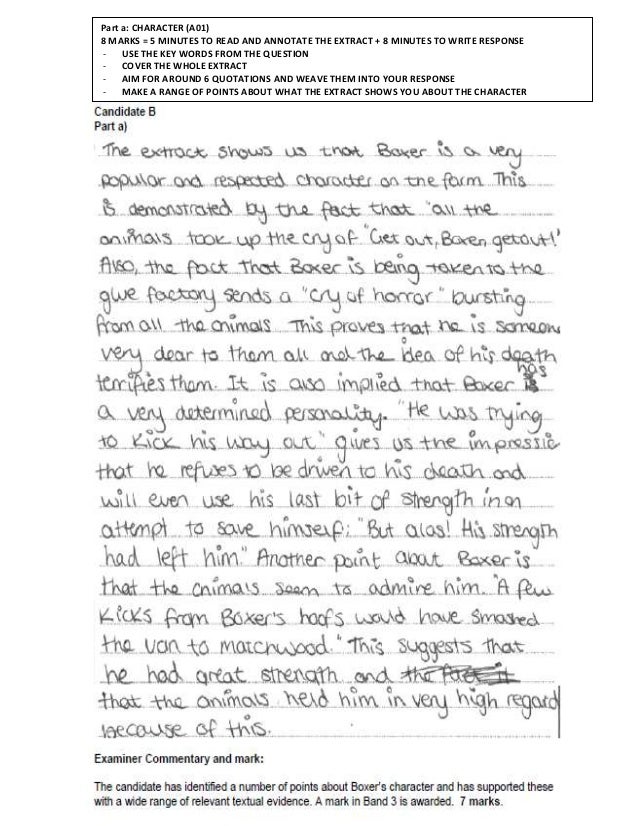 Part a: CHARACTER (A01)
8 MARKS = 5 MINUTES TO READ AND ANNOTATE THE EXTRACT + 8 MINUTES TO WRITE RESPONSE
- USE THE KEY WORDS FROM THE QUESTION
- COVER THE WHOLE EXTRACT
- AIM FOR AROUND 6 QUOTATIONS AND WEAVE THEM INTO YOUR RESPONSE
- MAKE A RANGE OF POINTS ABOUT WHAT THE EXTRACT SHOWS YOU ABOUT THE CHARACTER
Candidate B
Part a)
The extract shows us that Boxer is a very
popular and respected character on the farm. This
is demonstrated by the fact that "all the
animals took up the cry of "Get out, Boxer, get out!'
Also, the fact that Boxer is being taken to the
glue factory sends a "cry of horror" bursting
from all the animals. This proves that he is someon
very dear to them all and the idea of his death
terrifies them. It is also implied that Boxer has
a very determined personality. "He was trying
to kick his way out" gives us the impressio
that he refuses to be driven to his death and
will even use his last bit of strength in an
attempt to save himself: "But alas! His strength
had left him." Another point about Boxer is
that the animals seem to admire him. "A few
kicks from Boxer's hoofs would have smashed
the van to matchwood." This suggests that
he had great strength and
that the animals held him in very high regard
because of this.
Examiner Commentary and mark:
The candidate has identified a number of points about Boxer's character and has supported these
with a wide range of relevant textual evidence. A mark in Band 3 is awarded. 7 marks.